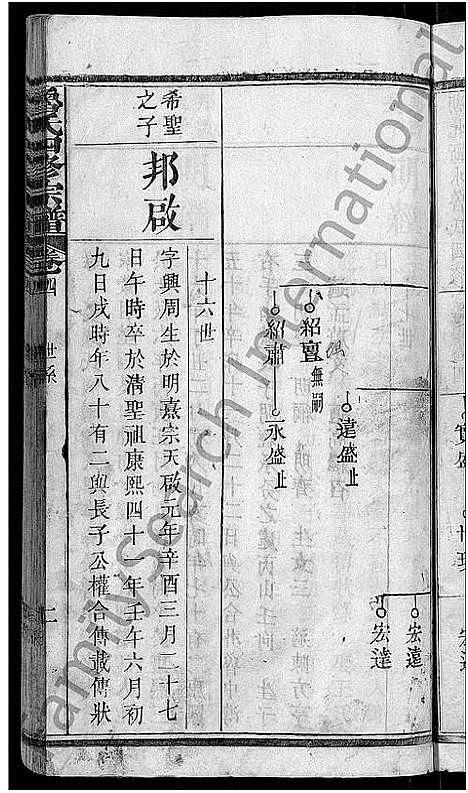 宏遠
宏達
遠盛止
紹亶無嗣
紹肅
永盛止
十六世
希聖之子
邦啟
字興周生於明熹宗天啟元年辛酉三月二十七
日午時卒於清聖祖康熙四十一年壬午六月初
九日戌時年八十有二與長子公權合傳載傳狀
氏四修宗譜
卷四
世系
FamilySearch International